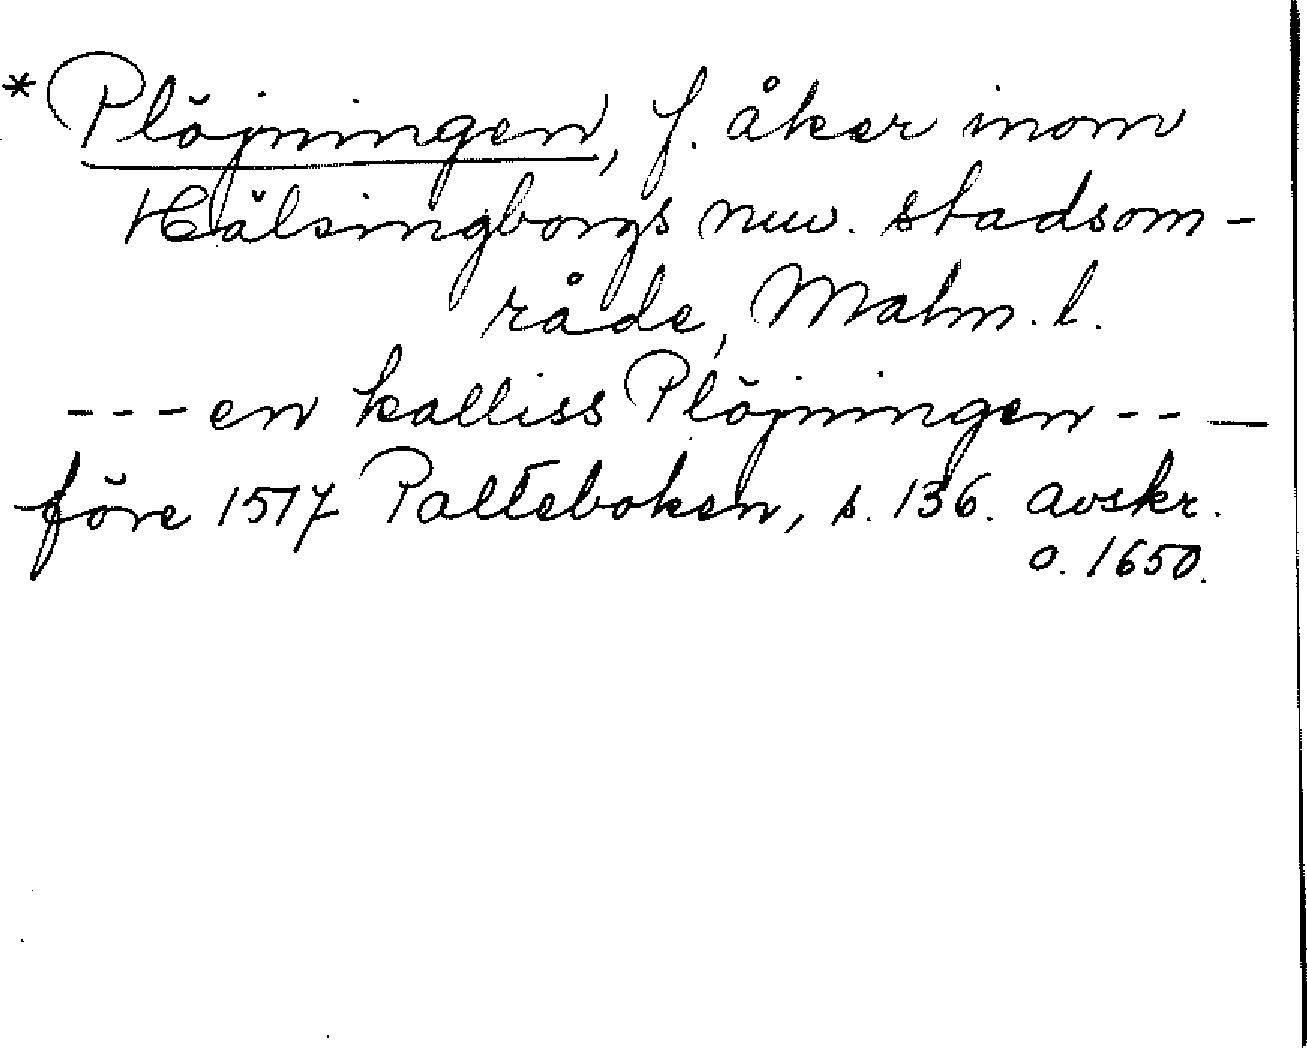 * Plöjningen, f. åker inom
Hälsingborgs nuv. stadsom-
råde, Malm. l.
--- en kalliss Plöjningen ---
före 1517 Palteboken, s. 136. avskr.
o. 1650.